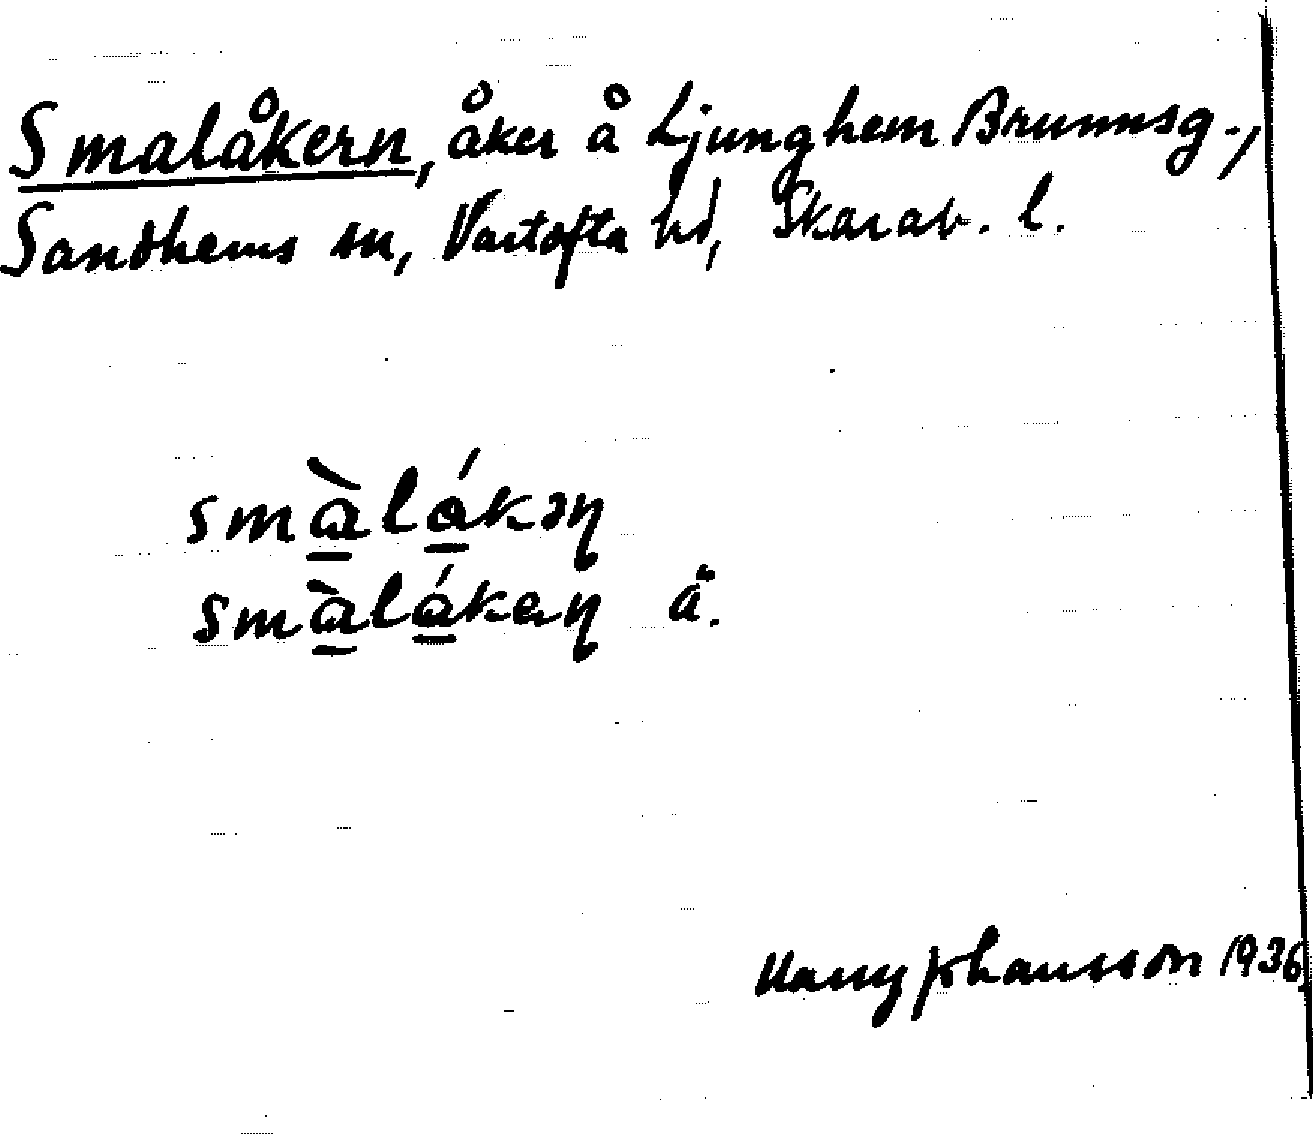 Smalåkern, åker å Ljunghem Brunnsg.,
Sandhems sn, Vartofta hd, Skarab. l.
smàlákəɳ
smàlákeɳ ä.
Harry Johansson 1936